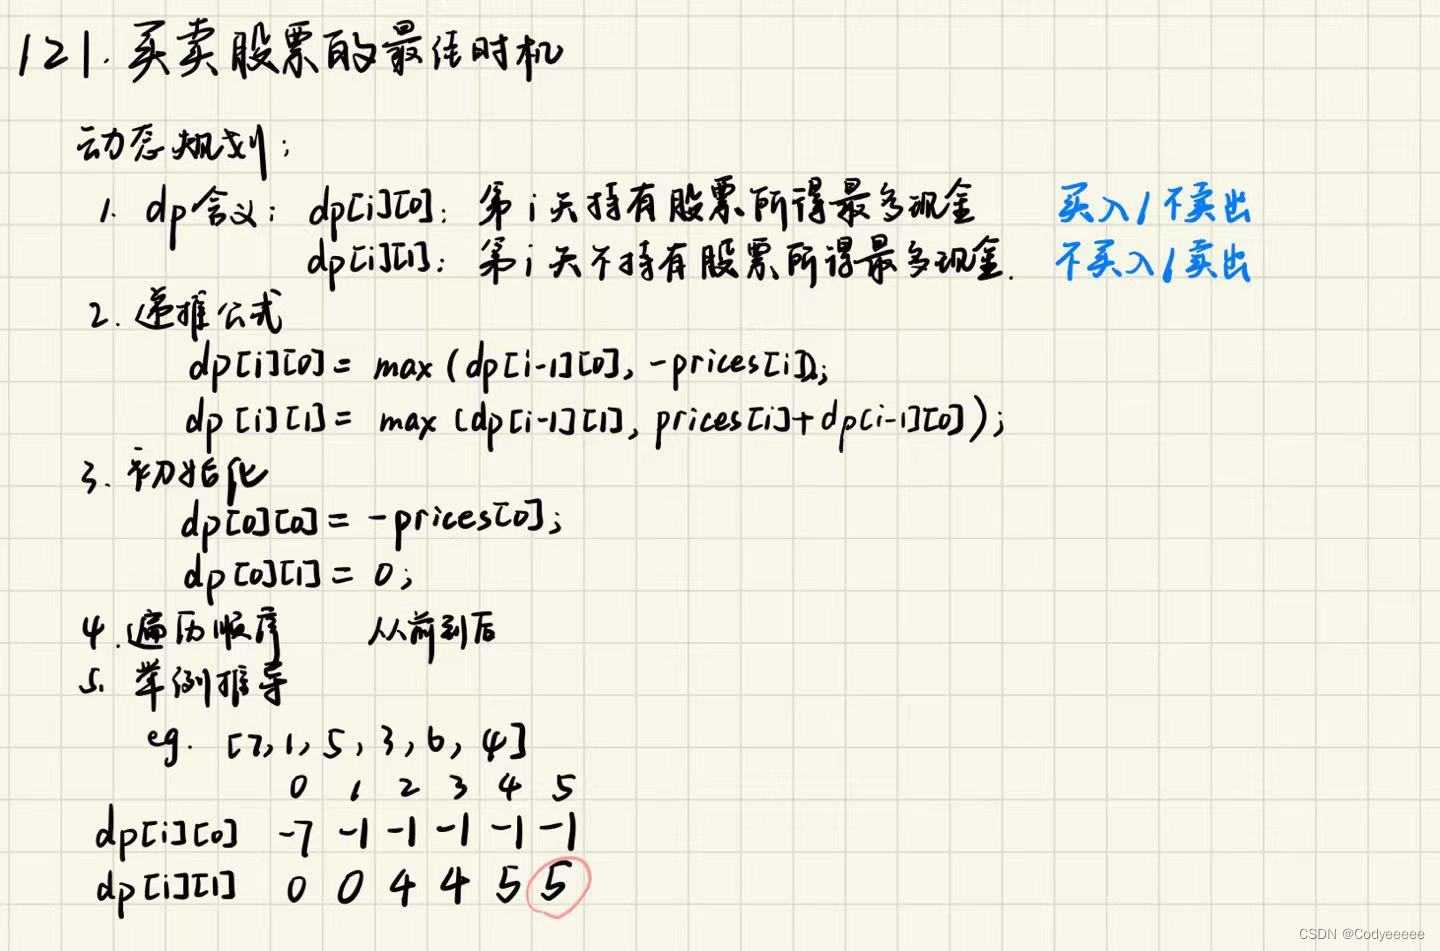 121. 买卖股票的最佳时机
动态规划:
1. dp含义: dp[i][0]: 第i天持有股票所得最多现金 买入/不卖出
dp[i][1]: 第i天不持有股票所得最多现金. 不买入/卖出
2. 递推公式
dp[i][0] = max(dp[i-1][0], -prices[i]);
dp[i][1] = max(dp[i-1][1], prices[i]+dp[i-1][0]);
3. 初始化
dp[0][0] = -prices[0];
dp[0][1] = 0;
4. 遍历顺序 从前到后
5. 举例推导
eg. [7,1,5,3,6,4]
0 1 2 3 4 5
dp[i][0] -7 -1 -1 -1 -1 -1
dp[i][1] 0 0 4 4 5 5
CSDN @Codyeeeee